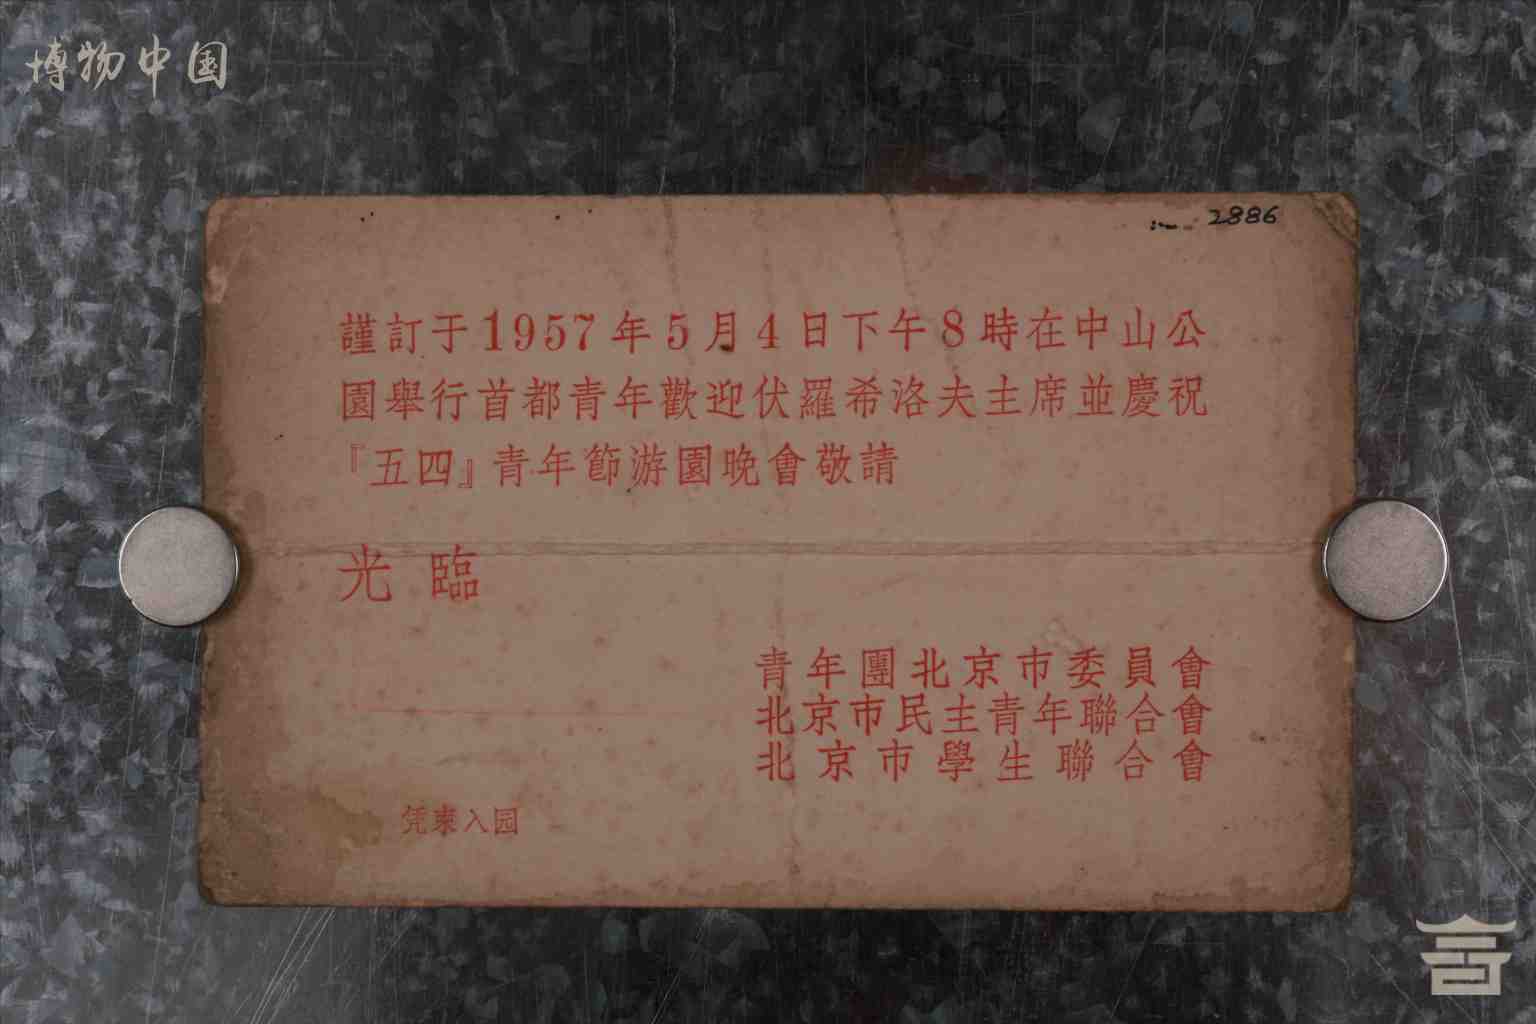 博物中国
2886
謹訂于1957年5月4日下午8時在中山公
園舉行首都青年歡迎伏羅希洛夫主席並慶祝
『五四』青年節游園晚會敬請
光臨
青年團北京市委員會
北京市民主青年聯合會
北京市學生聯合會
凭柬入园